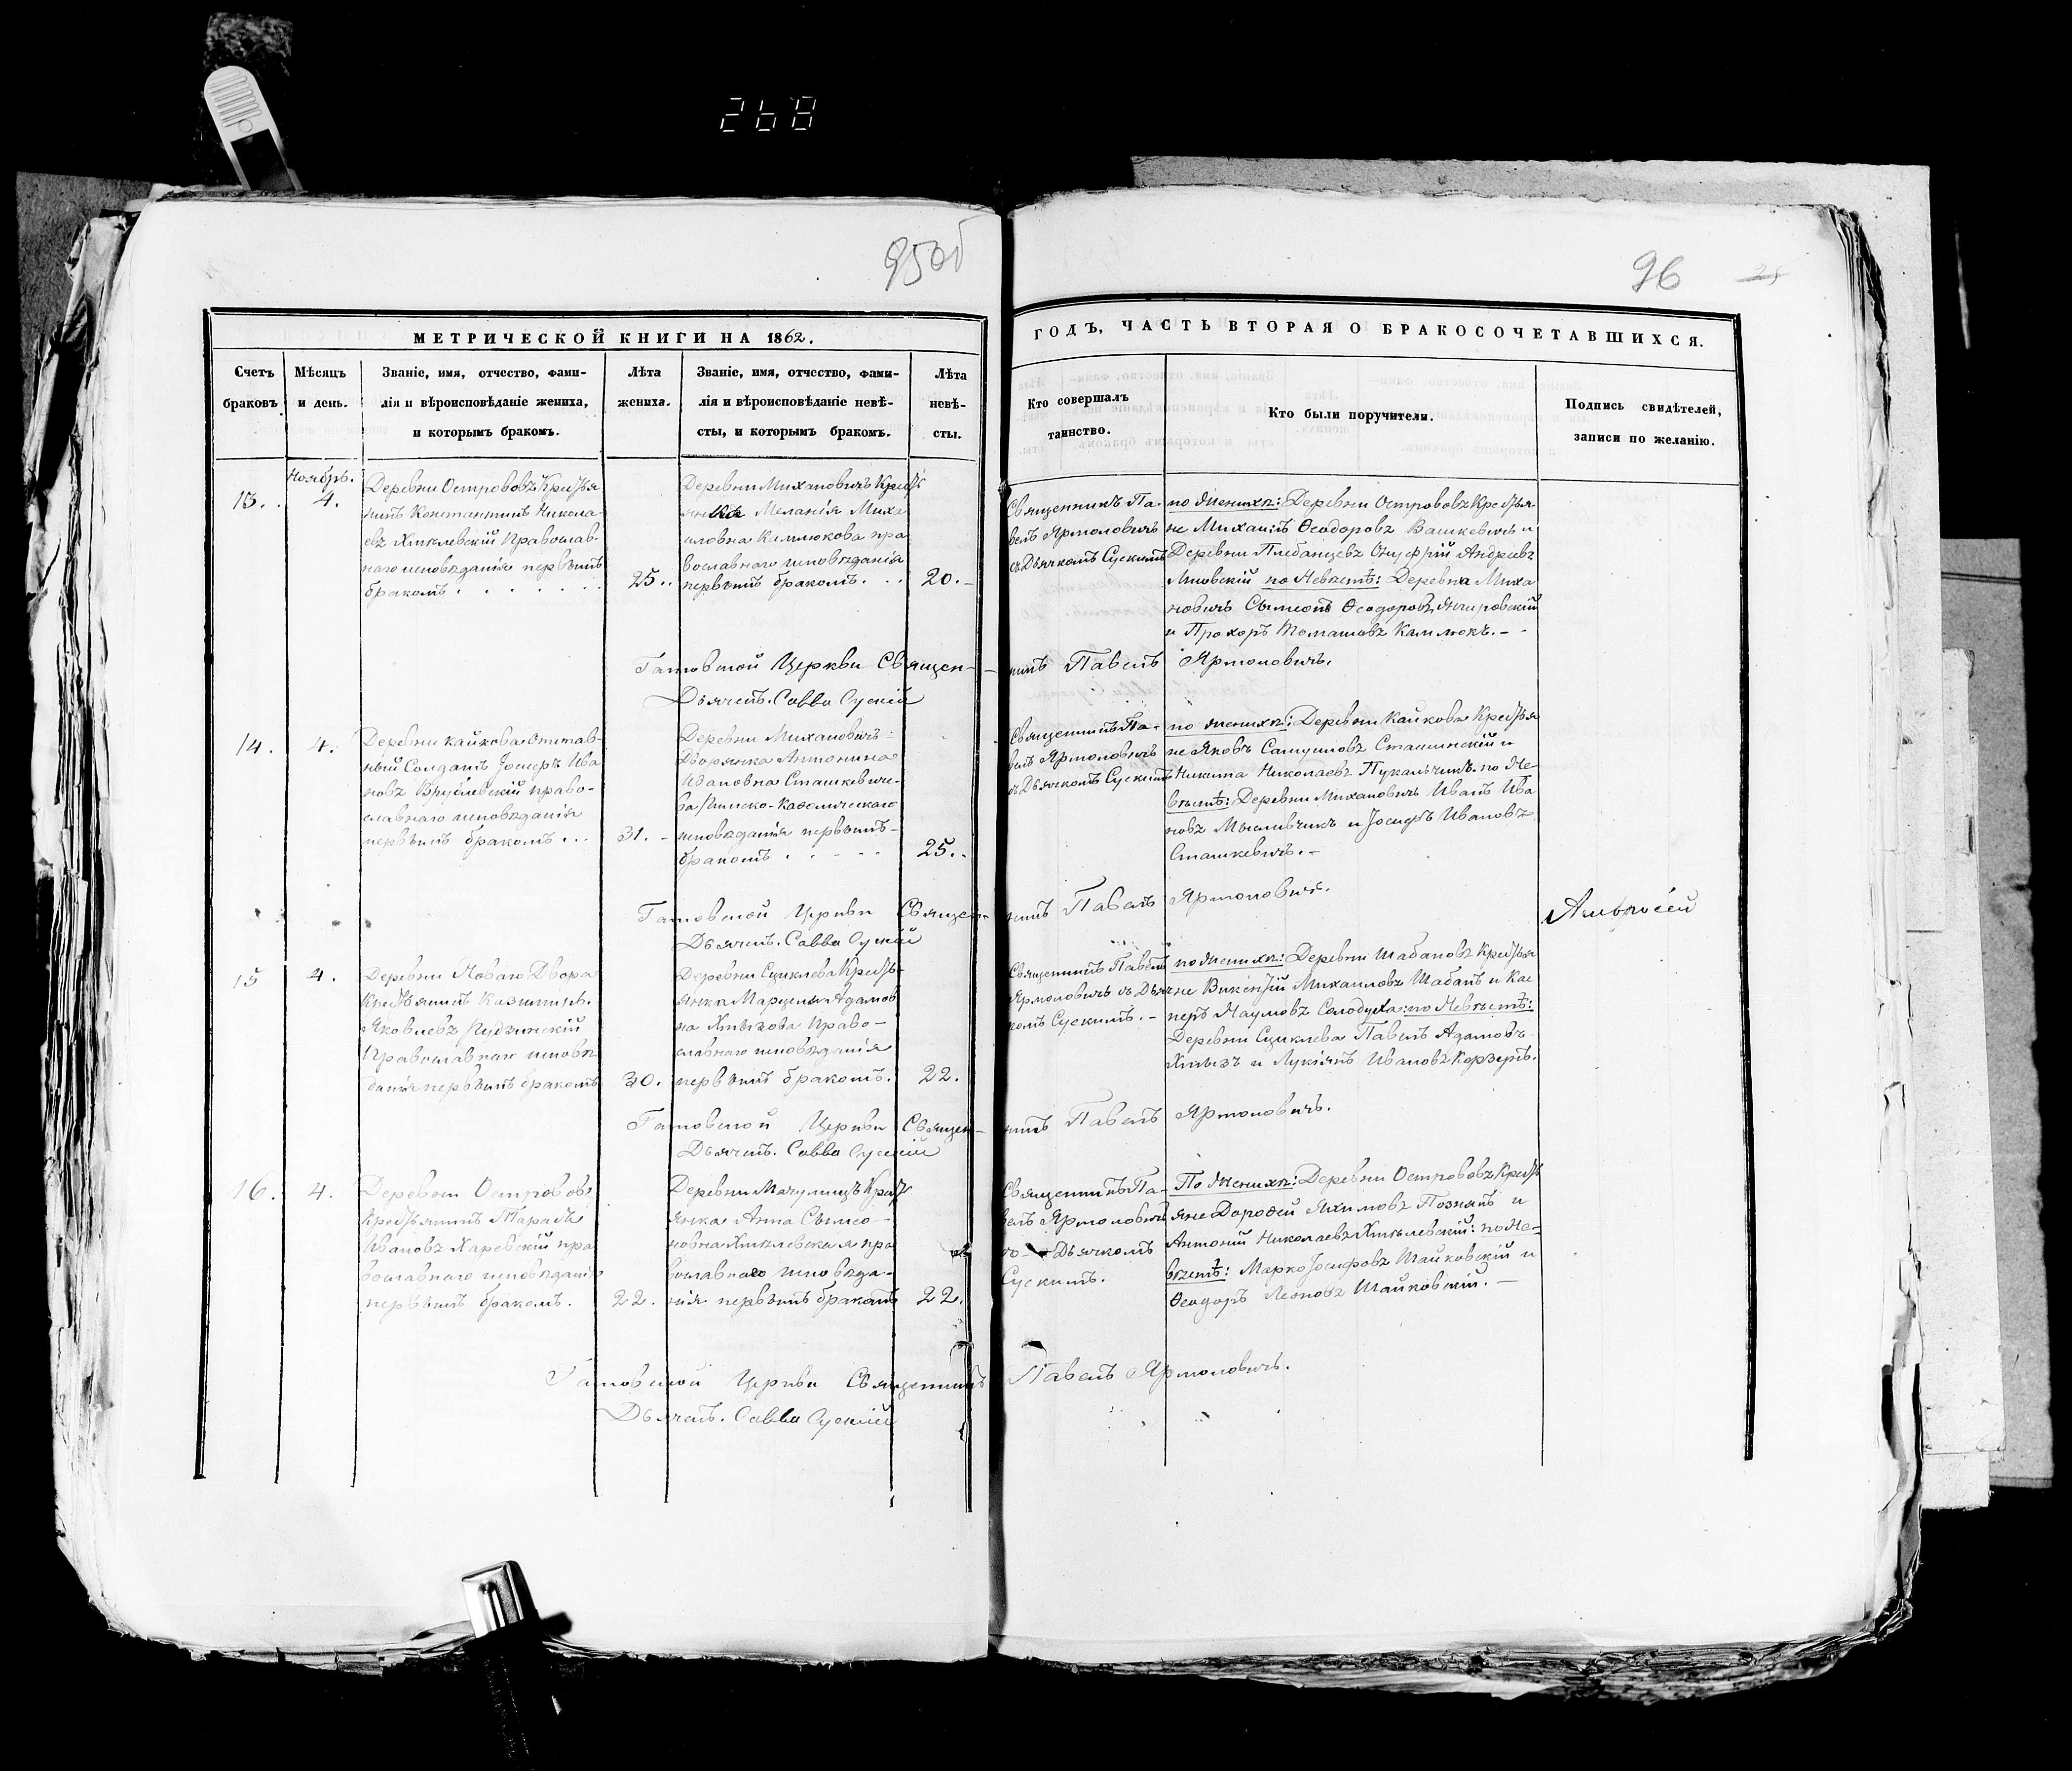 268
95об
96
25
МЕТРИЧЕСКОЙ КНИГИ НА 1862.
ГОДЪ, ЧАСТЬ ВТОРАЯ О БРАКОСОЧЕТАВШИХСЯ.
Счетъ
браковъ
Мѣсяцъ
и день.
Званіе, имя, отчество, фами-
лія и вѣроисповѣданіе жениха,
и которымъ бракомъ.
Лѣта
жениха.
Званіе, имя, отчество, фами-
лія и вѣроисповѣданіе невѣ-
сты, и которымъ бракомъ.
Лѣта
невѣ-
сты.
Кто совершалъ
таинство.
Кто были поручители.
Подпись свидѣтелей,
записи по желанію.
13.
Ноябрь.
4.
Деревни Острововъ Кресть́я
нинъ Константинъ Никола-
евъ Хмѣлевскій Православ-
наго исповѣданія первымъ
бракомъ . . . . . .
25..
Деревни Михановичъ Кресть
янка Меланія Миха
иловна Камлюкова пра
вославнаго исповѣданія
первымъ бракомъ. . .
20.-
Священникъ Па-
велъ Ярмоловичъ
съ Дьячкомъ Сускимъ
по Женихѣ: Деревни Острововъ Крестья-
не Михаилъ Ѳеодоровъ Вашкевичъ и
Деревни Плебанцевъ Онуфрій Андреевъ
по Невѣстѣ: Деревни Миха
новичъ Сѵмеонъ Ѳеодоровъ
и Прохоръ Томашовъ Камлюкъ. -
Гатовской Церкви Священ-
никъ Павелъ Ярмоловичъ.
Дьячекъ. Савва Сускій
14.
4.
Деревни Кайкова Отстав-
ный Солдатъ Іосифъ Ива
новъ Врублевскій право-
славнаго исповѣданія
первымъ бракомъ . . .
31. -
Деревни Михановичъ
Дворянка Антонина
Ивановна Сташкевиче-
ва Римско-Каѳолическаго
исповѣданія первымъ-
бракомъ . . - - -
25.-
Священникъ Па-
велъ Ярмоловичъ
съ Дьячкомъ Сускимъ
по Женихѣ: Деревни Кайкова Крестья
не Яковъ Самуиловъ Сташинскій и
Никита Николаевъ Пукальчикъ. по Не-
вѣстѣ: Деревни Михановичъ Иванъ Ива
новъ Мысливчикъ и Іосифъ Ивановъ
Сташкевичъ. -
Гатовской Церкви Священ-
никъ Павелъ Ярмоловичъ.
Дьячекъ. Савва Сускій
15
4.
Деревни Новаго Двора
Крестьянинъ Казимиръ
Яковлевъ Пудзинскій
Православнаго исповѣ
данія первымъ бракомъ
30.
Деревни Сциклева Кресть-
янка Марцеля Адамов
на Хмызова Право-
славнаго исповѣданія
первымъ бракомъ.
22.
Священникъ Павелъ
Ярмоловичъ съ Дьяч
комъ Сускимъ. -
по Женихѣ: Деревни Шабановъ Крестья
не Викентій Михаиловъ Шабанъ и Кас
перъ Наумовъ Солодуха: по Невѣстѣ:
Деревни Сциклева Павелъ Адамовъ
Хмызъ и Лукіянъ Ивановъ Корзунъ.
Гатовской Церкви Священ-
никъ Павелъ Ярмоловичъ.
Дьячекъ. Савва Сускій
16.
4.
Деревни Острововъ
Крестьянинъ Тарасъ
Ивановъ Харевскій пра
вославнаго исповѣданія
первымъ бракомъ.
22.
Деревни Мачулищъ Кресть
янка Анна Сѵмео-
новна Хмѣлевская пра
вославнаго исповѣда-
нія первымъ бракомъ
22.
Священникъ Па-
велъ Ярмоловичъ
Дьячкомъ
Сускимъ.
По Женихѣ: Деревни Острововъ Кресть
яне Дороѳей Якимовъ Познякъ и
Антоній Николаевъ Хмѣлевскій: по Не-
вѣстѣ: Марко Іосифовъ Шайковскій и
Ѳеодоръ Леоновъ Шайковскій. -
Гатовской Церкви Священникъ
Павелъ Ярмоловичъ.
Дьячекъ. Савва Сускій